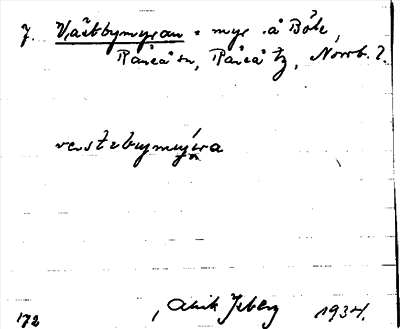 7. Västbymyran = myr å Böle,
Råneå sn, Råneå tg, Norrb. l.
västbymyra
172
Alrik Isberg 1934.